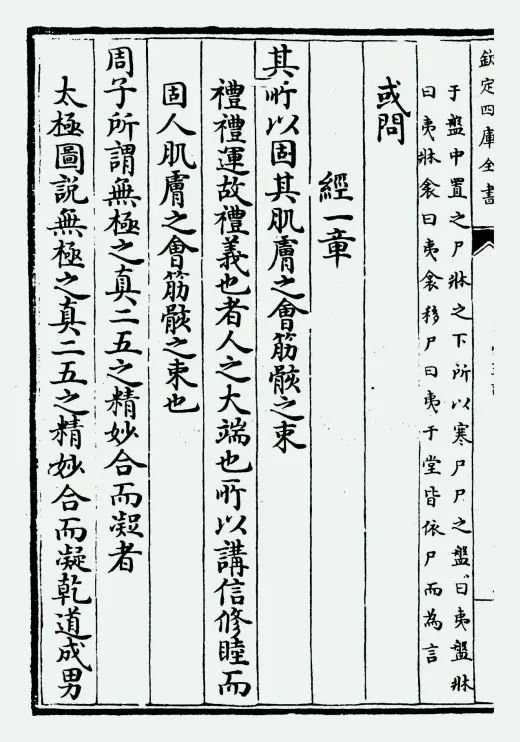 欽定四庫全書
于盤中置之尸牀之下所以寒尸尸之盤曰夷盤牀
曰夷牀衾曰夷衾移尸曰夷于堂皆依尸而為言
或問
經一章
其所以固其肌膚之會筋骸之束
禮禮運故禮義也者人之大端也所以講信修睦而
固人肌膚之會筋骸之束也
周子所謂無極之真二五之精妙合而凝者
太極圖説無極之真二五之精妙合而凝乾道成男